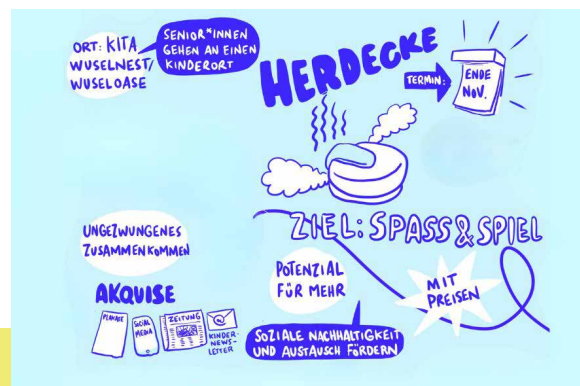 ORT: KITA
WUSELNEST/
WUSELOASE
SENIOR*INNEN
GEHEN AN EINEN
KINDERORT
HERDECKE
TERMIN:
ENDE
NOV.
ZIEL: SPASS & SPIEL
UNGEZWUNGENES
ZUSAMMENKOMMEN
POTENZIAL
FÜR MEHR
MIT
PREISEN
AKQUISE
PLAKATE
SOCIAL
MEDIA
ZEITUNG
KINDER-
NEWS-
LETTER
SOZIALE NACHHALTIGKEIT
UND AUSTAUSCH FÖRDERN